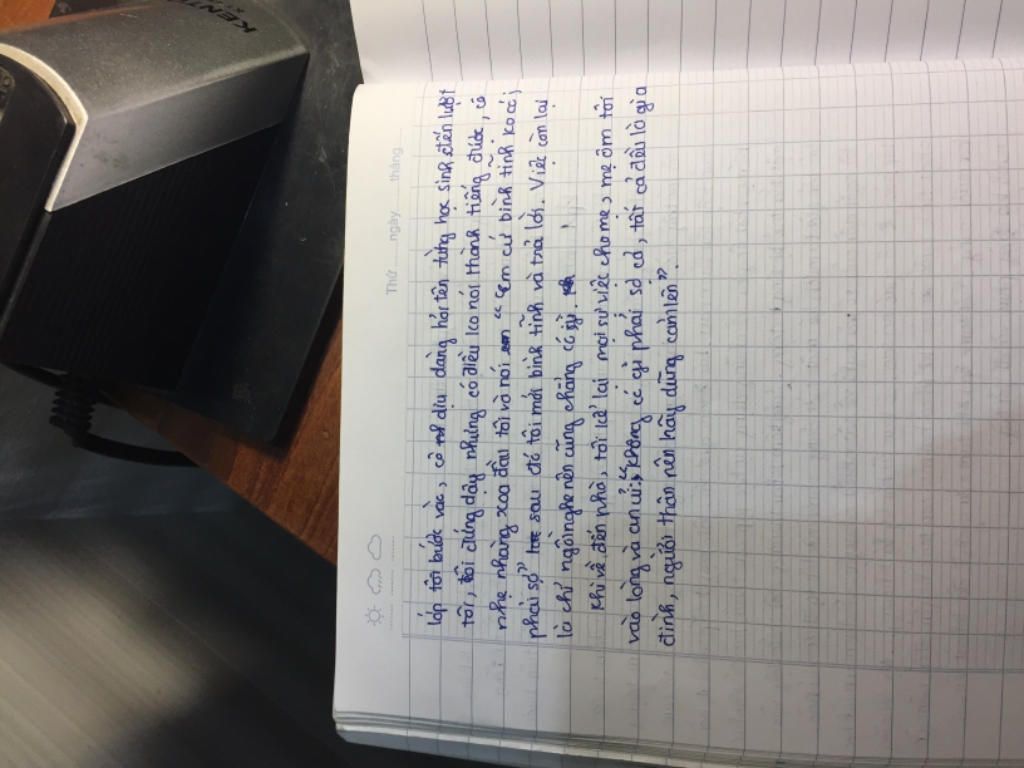 KENTW
Thứ ...... ngày ...... tháng
lớp tôi bước vào, cô dịu dàng hỏi tên từng học sinh đến lượt
tôi, tôi đứng dậy nhưng có điều ko nói thành tiếng được, cô
nhẹ nhàng xoa đầu tôi và nói "em cứ bình tĩnh ko có j
phải sợ" sau đó tôi mới bình tĩnh và trả lời. Việc còn lại
là chỉ ngồi nghe nên cũng chẳng có gì.
Khi về đến nhà, tôi kể lại mọi sự việc cho mẹ, mẹ ôm tôi
vào lòng và an ủi: "không có gì phải sợ cả, tất cả đều là gia
đình, người thân nên hãy dũng cảm lên".